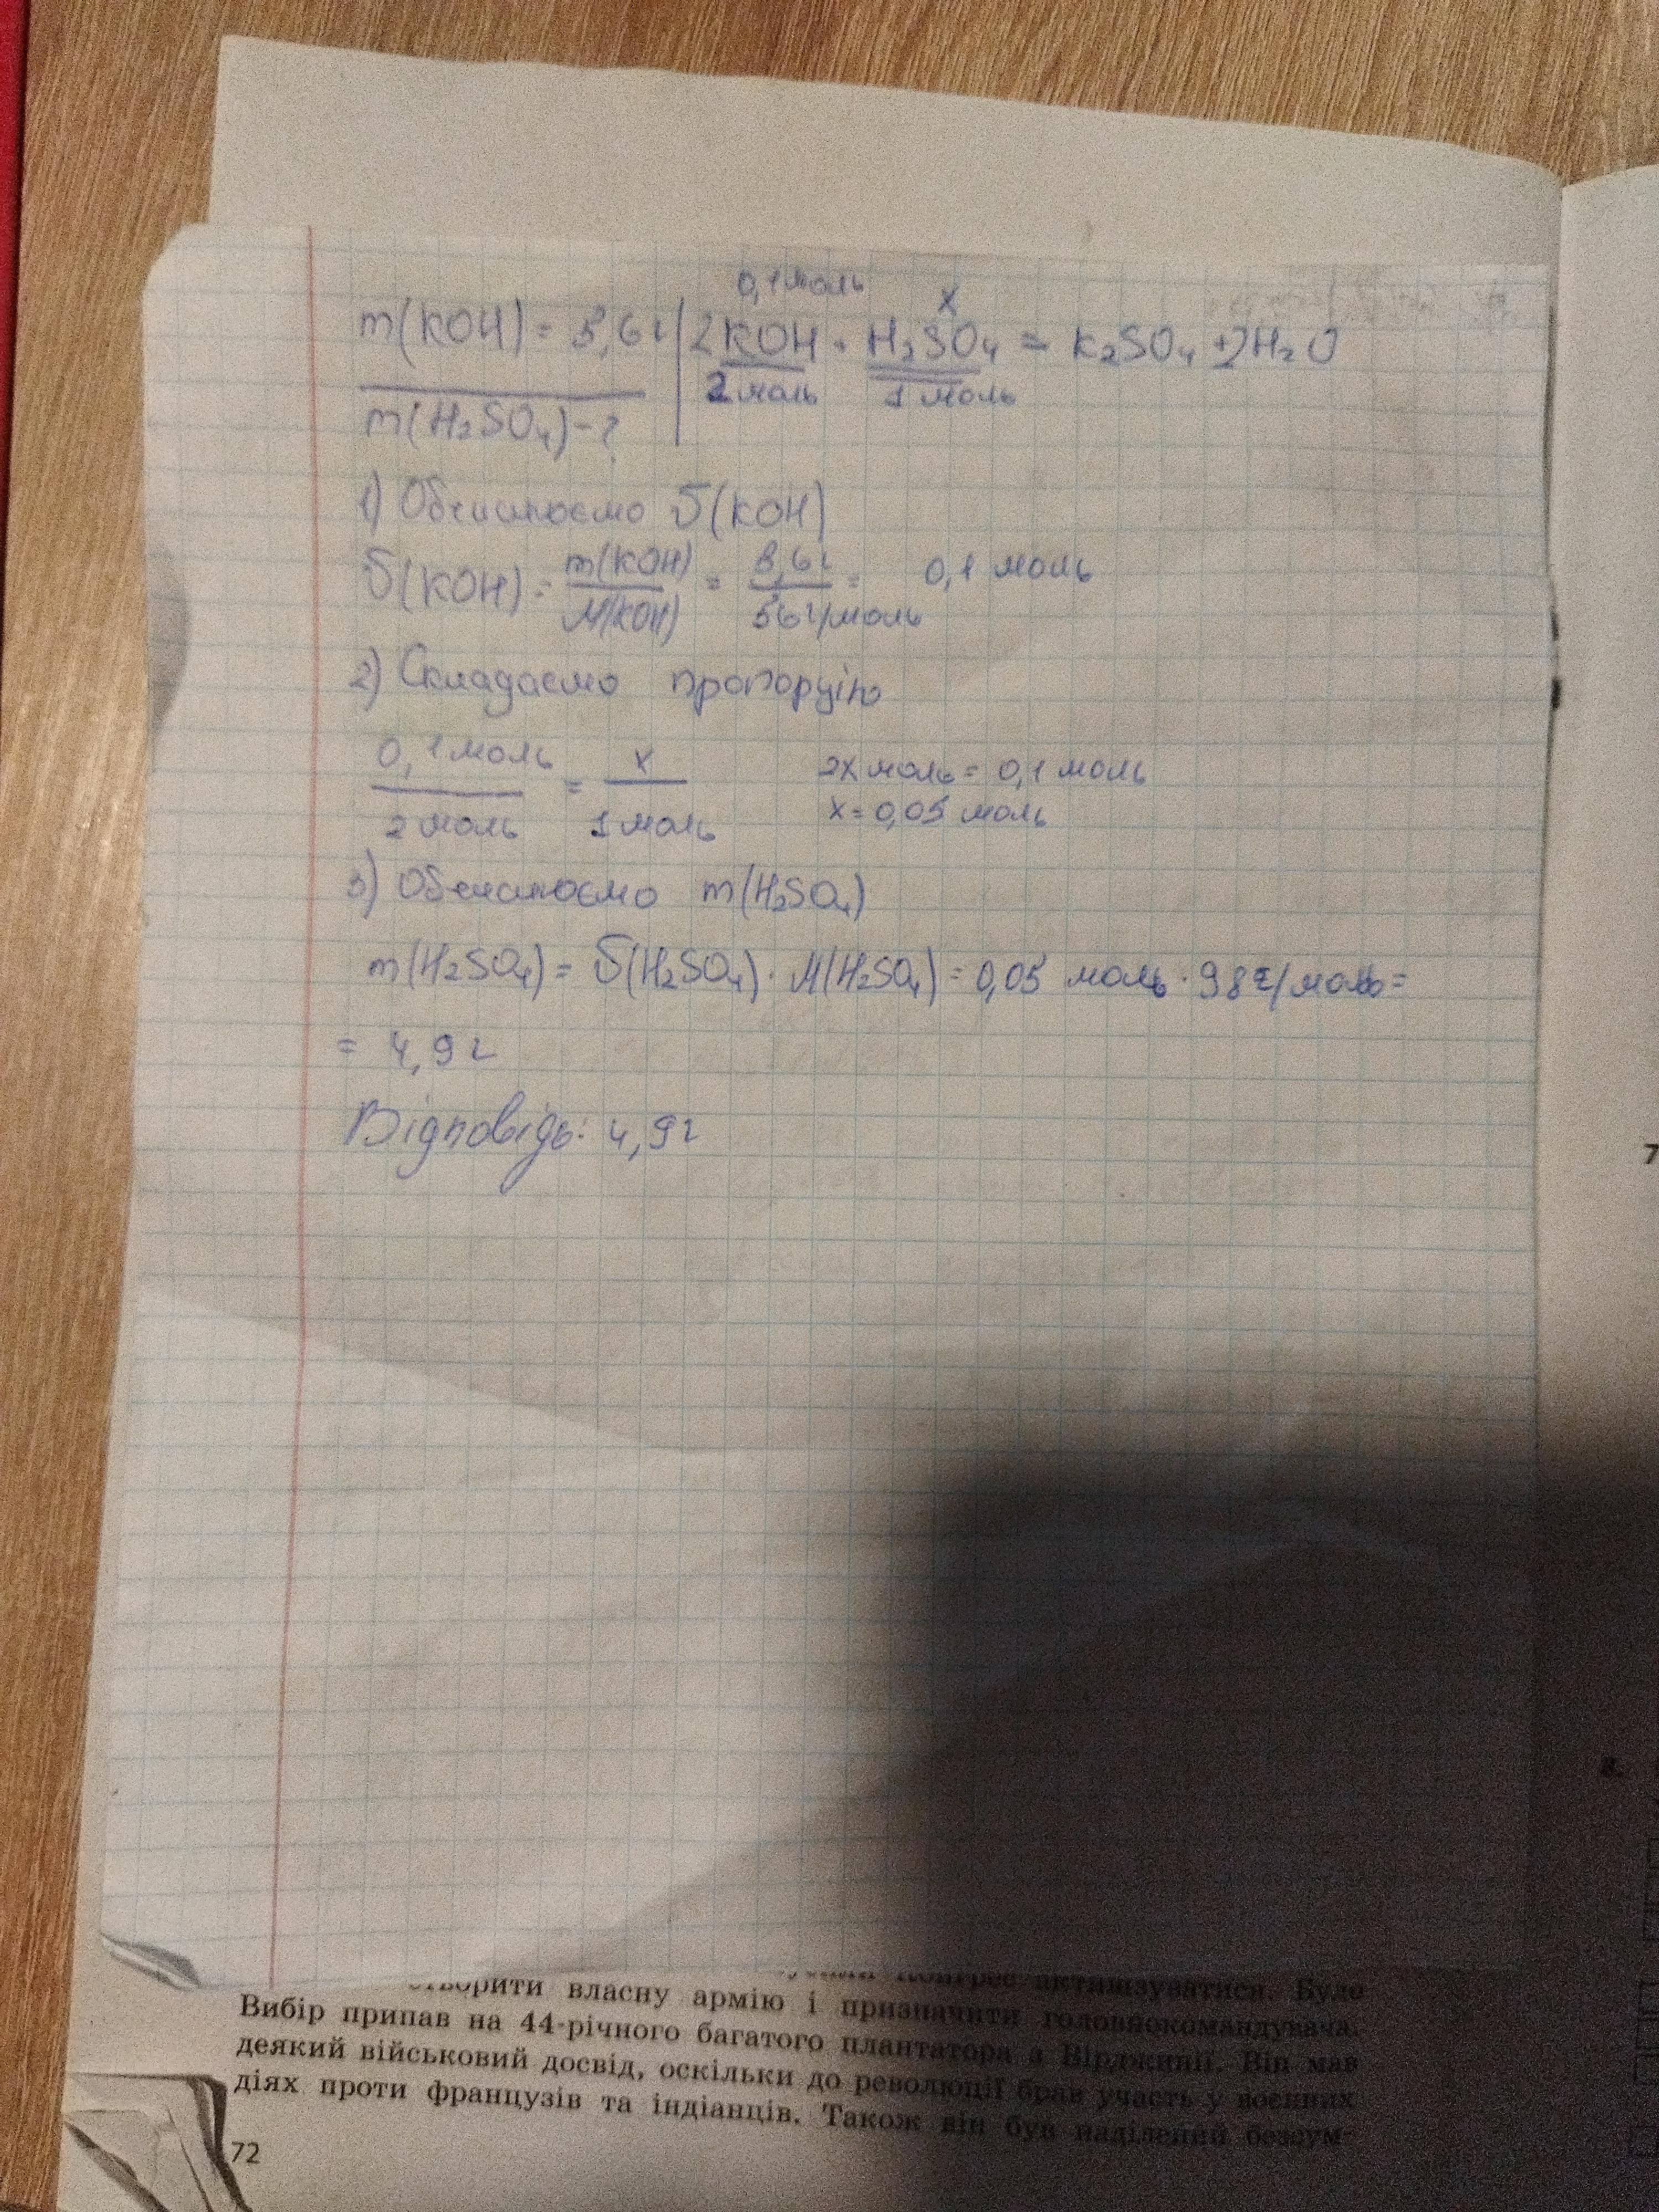 0,1 моль x
m(KOH) = 5,6 г | 2KOH + H₂SO₄ = K₂SO₄ + 2H₂O
2 моль 1 моль
m(H₂SO₄) - ?
1) Обчислюємо ν(KOH)
ν(KOH) = m(KOH)/M(KOH) = 5,6 г/56 г/моль = 0,1 моль
2) Складаємо пропорцію
0,1 моль/2 моль = x/1 моль 2x моль = 0,1 моль
x = 0,05 моль
3) Обчислюємо m(H₂SO₄)
m(H₂SO₄) = ν(H₂SO₄) · M(H₂SO₄) = 0,05 моль · 98 г/моль =
= 4,9 г
Відповідь: 4,9 г
творити власну армію і призначити головнокомандувача.
Було
Вибір припав на 44-річного багатого плантатора з Вірджинії. Він мав
деякий військовий досвід, оскільки до революції брав участь у воєнних
діях проти французів та індіанців. Також він був наділений безсум-
72
7
8.